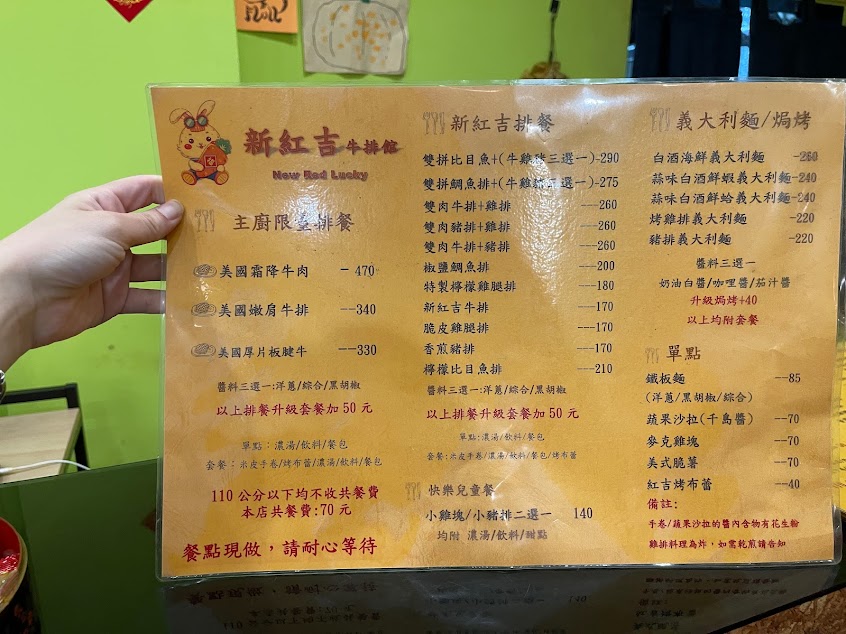 新紅吉牛排館
New Red Lucky
主廚限量排餐
美國霜降牛肉 -470
美國嫩肩牛排 --340
美國厚片板腱牛 --330
醬料三選一:洋蔥/綜合/黑胡椒
以上排餐升級套餐加 50 元
單點:濃湯/飲料/餐包
套餐:米皮手卷/烤布蕾/濃湯/飲料/餐包
110 公分以下均不收共餐費
本店共餐費:70 元
餐點現做,請耐心等待
新紅吉排餐
雙拼比目魚+(牛雞豬三選一)-290
雙拼鯛魚排+(牛雞豬三選一)-275
雙肉牛排+雞排 ----260
雙肉豬排+雞排 ----260
雙肉牛排+豬排 ----260
椒鹽鯛魚排 ---200
特製檸檬雞腿排 ----180
新紅吉牛排 ---170
脆皮雞腿排 ----170
香煎豬排 ----170
檸檬比目魚排 ---210
醬料三選一:洋蔥/綜合/黑胡椒
以上排餐升級套餐加 50 元
單點:濃湯/飲料/餐包
套餐:米皮手卷/濃湯/飲料/餐包/烤布蕾
快樂兒童餐
小雞塊/小豬排二選一 140
均附 濃湯/飲料/甜點
義大利麵/焗烤
白酒海鮮義大利麵 -260
蒜味白酒鮮蝦義大利麵-240
蒜味白酒鮮蛤義大利麵-240
烤雞排義大利麵 -220
豬排義大利麵 -220
醬料三選一
奶油白醬/咖哩醬/茄汁醬
升級焗烤+40
以上均附套餐
單點
鐵板麵 --85
(洋蔥/黑胡椒/綜合)
蔬果沙拉(千島醬) --70
麥克雞塊 --70
美式脆薯 --70
紅吉烤布蕾 --40
備註:
手卷/蔬果沙拉的醬內含物有花生粉
雞排料理為炸,如需乾煎請告知